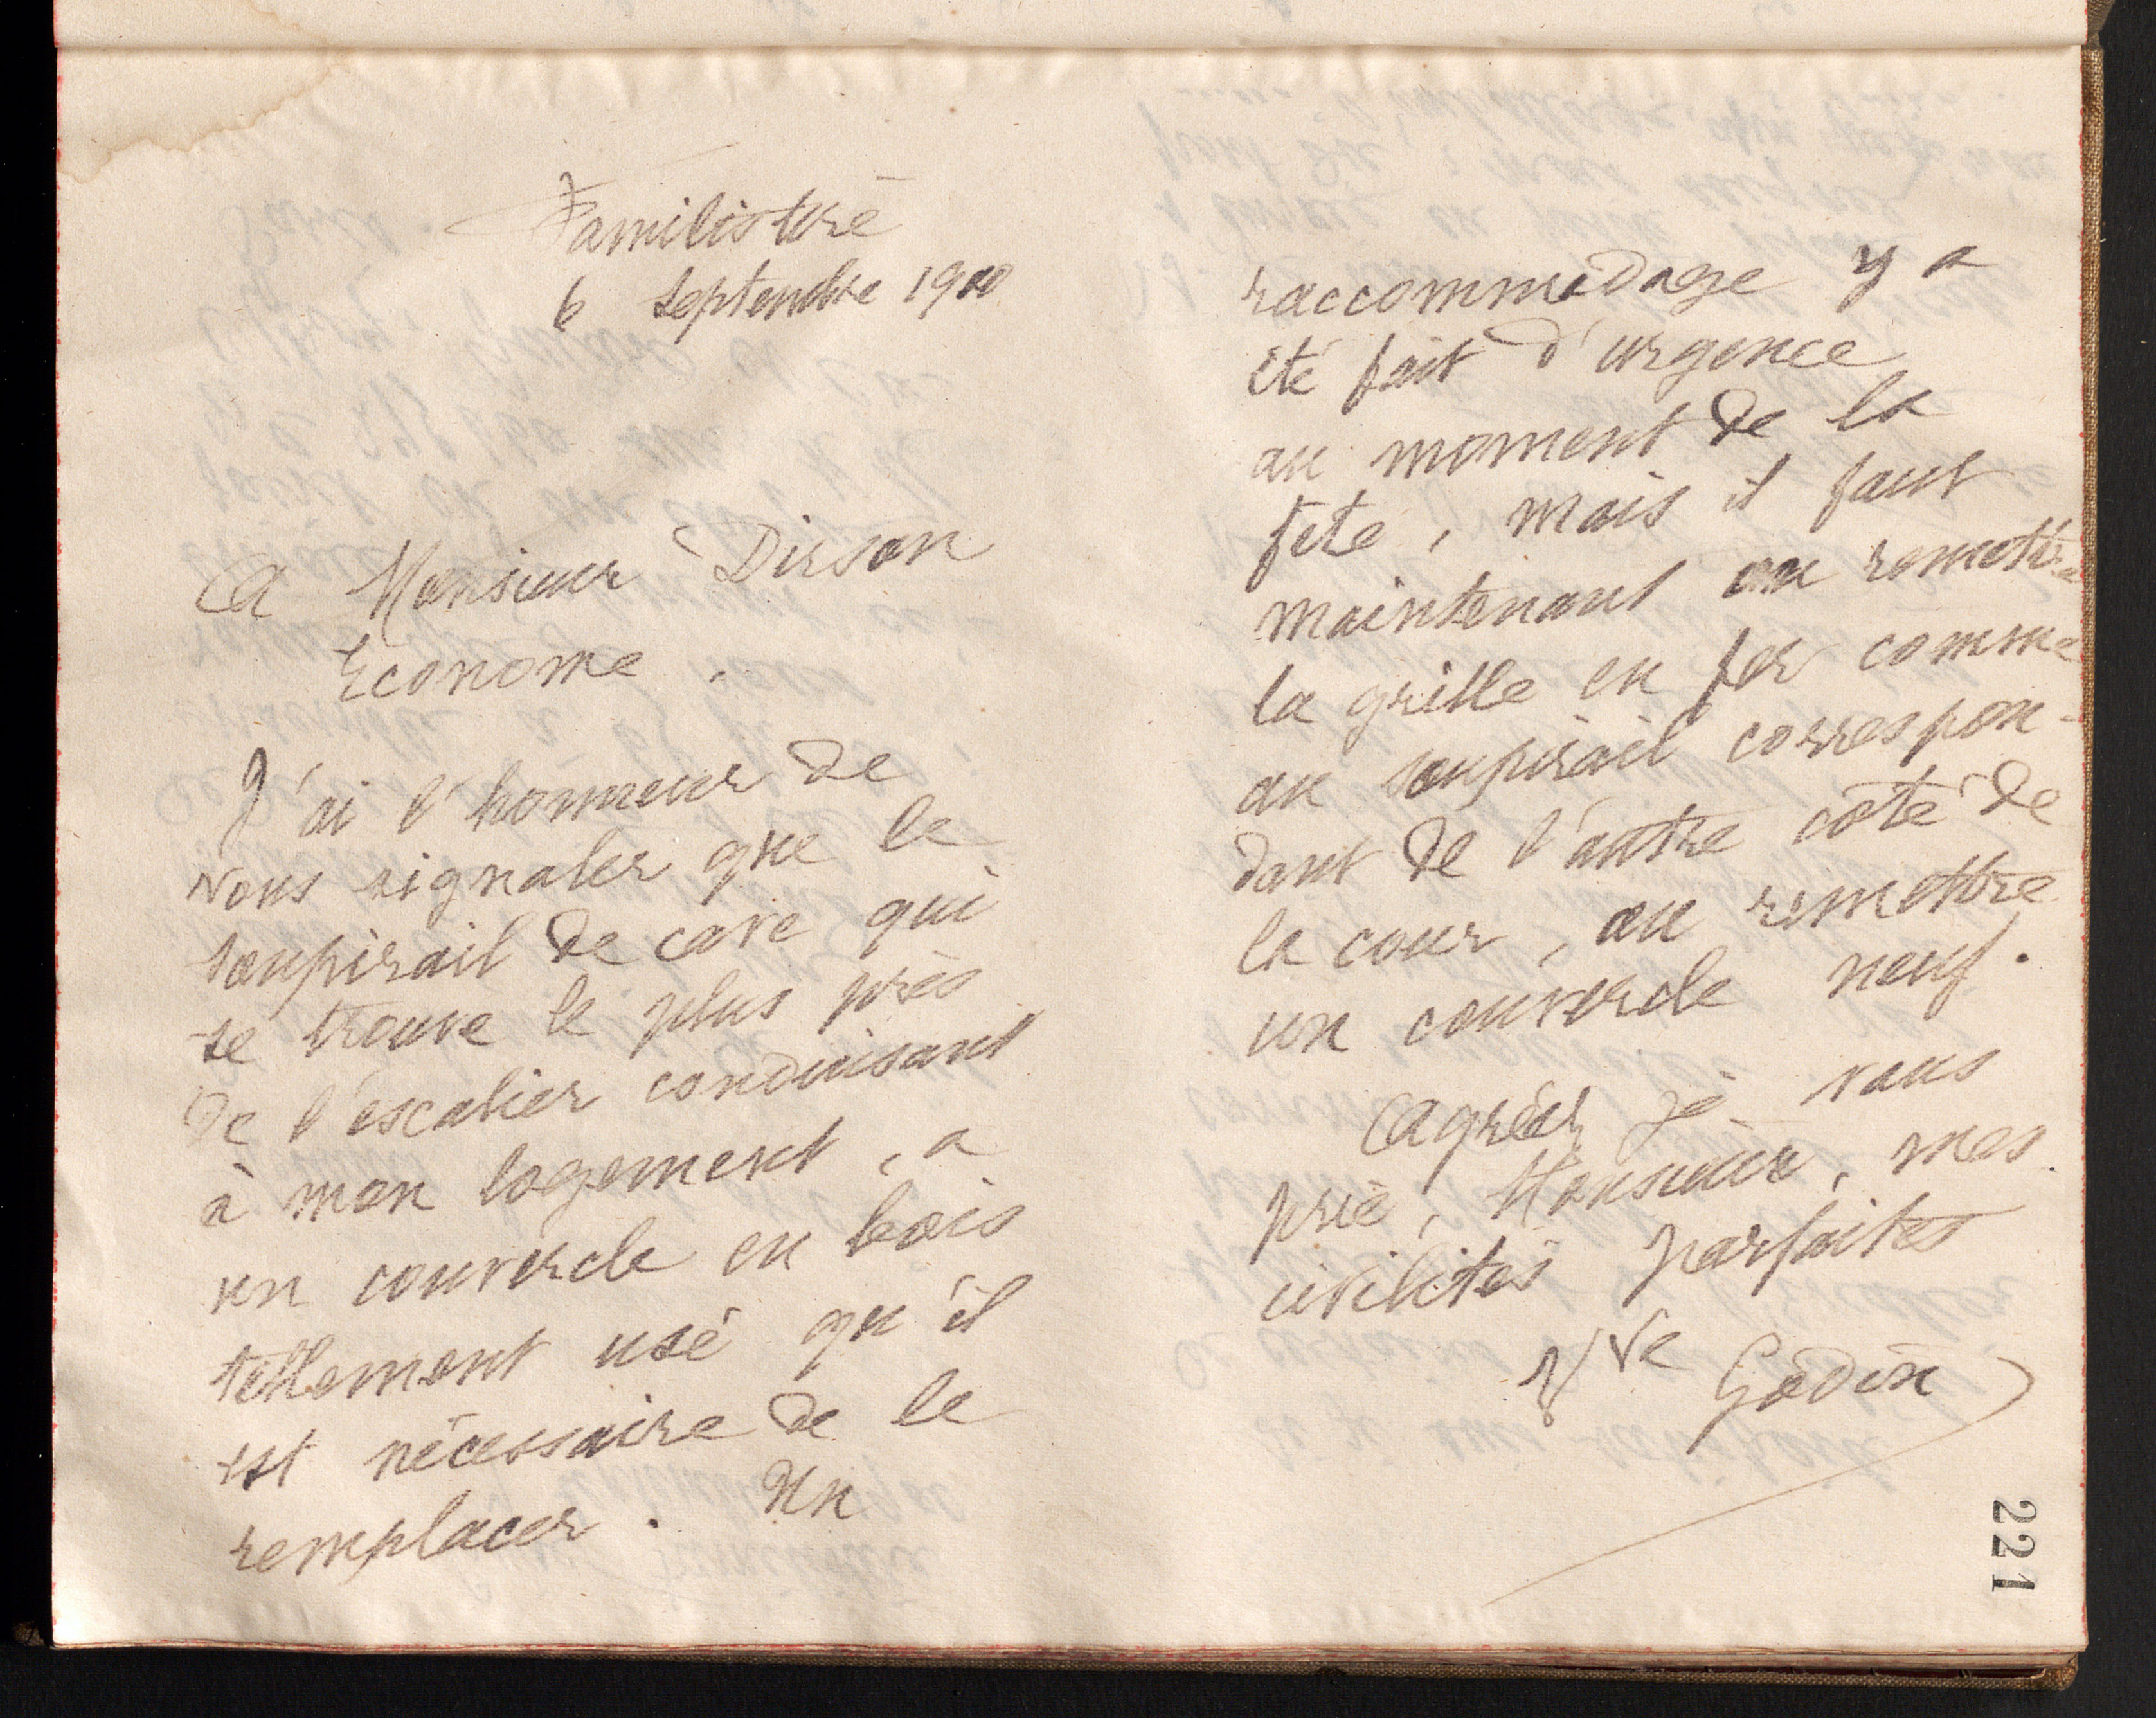 Familistère
6 septembre 1900
A Monsieur Dirson
Econome.
J'ai l'honneur de
vous signaler que le
soupirail de cave qui
se trouve le plus près
de l'escalier conduisant
à mon logement, a
un couvercle en bois
tellement usé qu'il
est nécessaire de le
remplacer. Un
raccommodage y a
été fait d'urgence
au moment de la
fête, mais il faut
maintenant ou remettre
la grille en fer comme
au soupirail correspon-
dant de l'autre côté de
la cour, ou remettre
un couvercle neuf.
Agréez je vous
prie, Monsieur, mes
civilités parfaites
Vve Godin
221